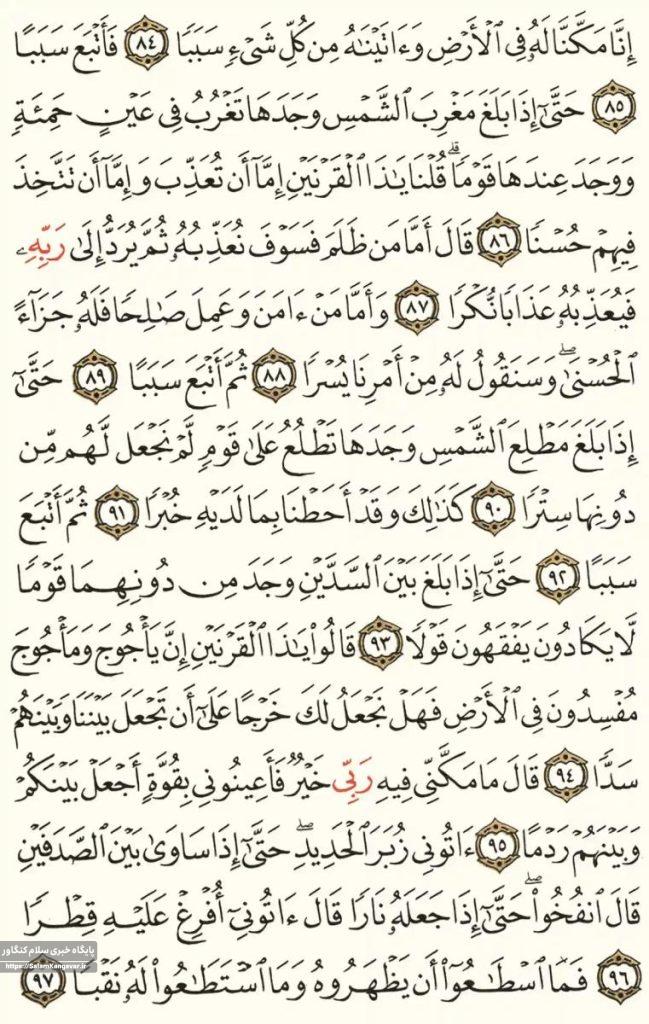 إِنَّا مَكَّنَّا لَهُۥ فِى ٱلْأَرْضِ وَءَاتَيْنَٰهُ مِن كُلِّ شَىْءٍ سَبَبًا ٨٤ فَأَتْبَعَ سَبَبًا
٨٥ حَتَّىٰٓ إِذَا بَلَغَ مَغْرِبَ ٱلشَّمْسِ وَجَدَهَا تَغْرُبُ فِى عَيْنٍ حَمِئَةٍ
وَوَجَدَ عِندَهَا قَوْمًا ۗ قُلْنَا يَٰذَا ٱلْقَرْنَيْنِ إِمَّآ أَن تُعَذِّبَ وَإِمَّآ أَن تَتَّخِذَ
فِيهِمْ حُسْنًا ٨٦ قَالَ أَمَّا مَن ظَلَمَ فَسَوْفَ نُعَذِّبُهُۥ ثُمَّ يُرَدُّ إِلَىٰ رَبِّهِۦ
فَيُعَذِّبُهُۥ عَذَابًا نُّكْرًا ٨٧ وَأَمَّا مَنْ ءَامَنَ وَعَمِلَ صَٰلِحًا فَلَهُۥ جَزَآءً
ٱلْحُسْنَىٰ ۖ وَسَنَقُولُ لَهُۥ مِنْ أَمْرِنَا يُسْرًا ٨٨ ثُمَّ أَتْبَعَ سَبَبًا ٨٩ حَتَّىٰٓ
إِذَا بَلَغَ مَطْلِعَ ٱلشَّمْسِ وَجَدَهَا تَطْلُعُ عَلَىٰ قَوْمٍ لَّمْ نَجْعَل لَّهُم مِّن
دُونِهَا سِتْرًا ٩٠ كَذَٰلِكَ وَقَدْ أَحَطْنَا بِمَا لَدَيْهِ خُبْرًا ٩١ ثُمَّ أَتْبَعَ
سَبَبًا ٩٢ حَتَّىٰٓ إِذَا بَلَغَ بَيْنَ ٱلسَّدَّيْنِ وَجَدَ مِن دُونِهِمَا قَوْمًا
لَّا يَكَادُونَ يَفْقَهُونَ قَوْلًا ٩٣ قَالُوا۟ يَٰذَا ٱلْقَرْنَيْنِ إِنَّ يَأْجُوجَ وَمَأْجُوجَ
مُفْسِدُونَ فِى ٱلْأَرْضِ فَهَلْ نَجْعَلُ لَكَ خَرْجًا عَلَىٰٓ أَن تَجْعَلَ بَيْنَنَا وَبَيْنَهُمْ
سَدًّا ٩٤ قَالَ مَا مَكَّنِّى فِيهِ رَبِّى خَيْرٌ فَأَعِينُونِى بِقُوَّةٍ أَجْعَلْ بَيْنَكُمْ
وَبَيْنَهُمْ رَدْمًا ٩٥ ءَاتُونِى زُبَرَ ٱلْحَدِيدِ ۖ حَتَّىٰٓ إِذَا سَاوَىٰ بَيْنَ ٱلصَّدَفَيْنِ
قَالَ ٱنفُخُوا۟ ۖ حَتَّىٰٓ إِذَا جَعَلَهُۥ نَارًا قَالَ ءَاتُونِىٓ أُفْرِغْ عَلَيْهِ قِطْرًا
٩٦ فَمَا ٱسْطَٰعُوٓا۟ أَن يَظْهَرُوهُ وَمَا ٱسْتَطَٰعُوا۟ لَهُۥ نَقْبًا ٩٧
پایگاه خبری سلام کنگاور
https://SalamKangavar.ir